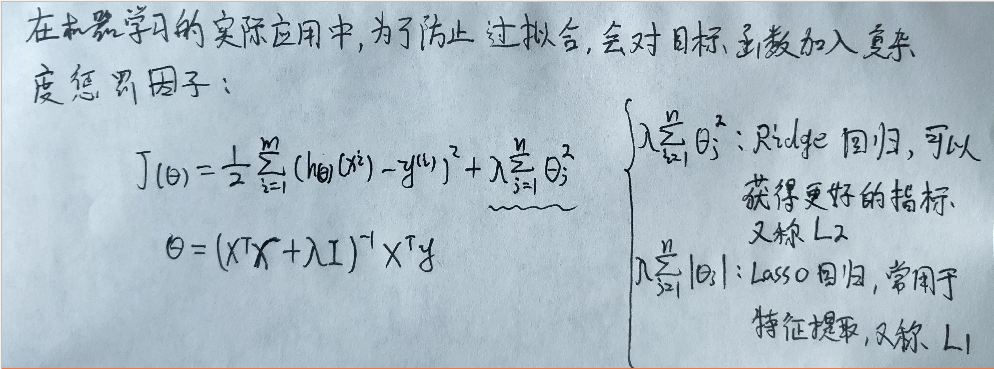 在机器学习的实际应用中,为了防止过拟合,会对目标函数加入复杂
度惩罚因子:
J(θ) = 1/2 ∑_{i=1}^{m} (h_{(θ)}(x^{i}) - y^{(i)})^2 + λ∑_{j=1}^{n} θ_j^2
θ = (X^T X + λI)^{-1} X^T y
λ∑_{i=1}^{n} θ_j^2 : Ridge 回归,可以
获得更好的指标、
又称 L2
λ∑_{j=1}^{n} |θ_j| : Lasso 回归,常用于
特征提取,又称 L1